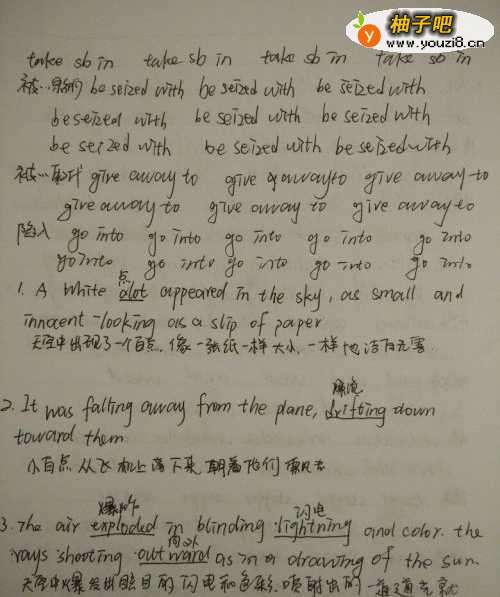 柚子吧
www.youzi8.cn
take sb in take sb in take sb in take sb in
be seized with be seized with be seized with
be seized with be seized with be seized with
be seized with be seized with be seized with
被…取代 give away to give away to give away to
give away to give away to give away to
陷入 go into go into go into go into go into
go into go into go into go into go into
点
1. A white dot appeared in the sky, as small and
innocent-looking as a slip of paper
天空中出现了一个白点,像一张纸一样大小,一样地洁白无害
飘流
2. It was falling away from the plane, drifting down
toward them
小白点从飞机上落下来,朝着他们飘去
爆炸 闪电
3. The air exploded in blinding lightning and color. the
向外
rays shooting outward as in a drawing of the sun.
天空中爆发出眩目的闪电和色彩,喷射出的一道道光就